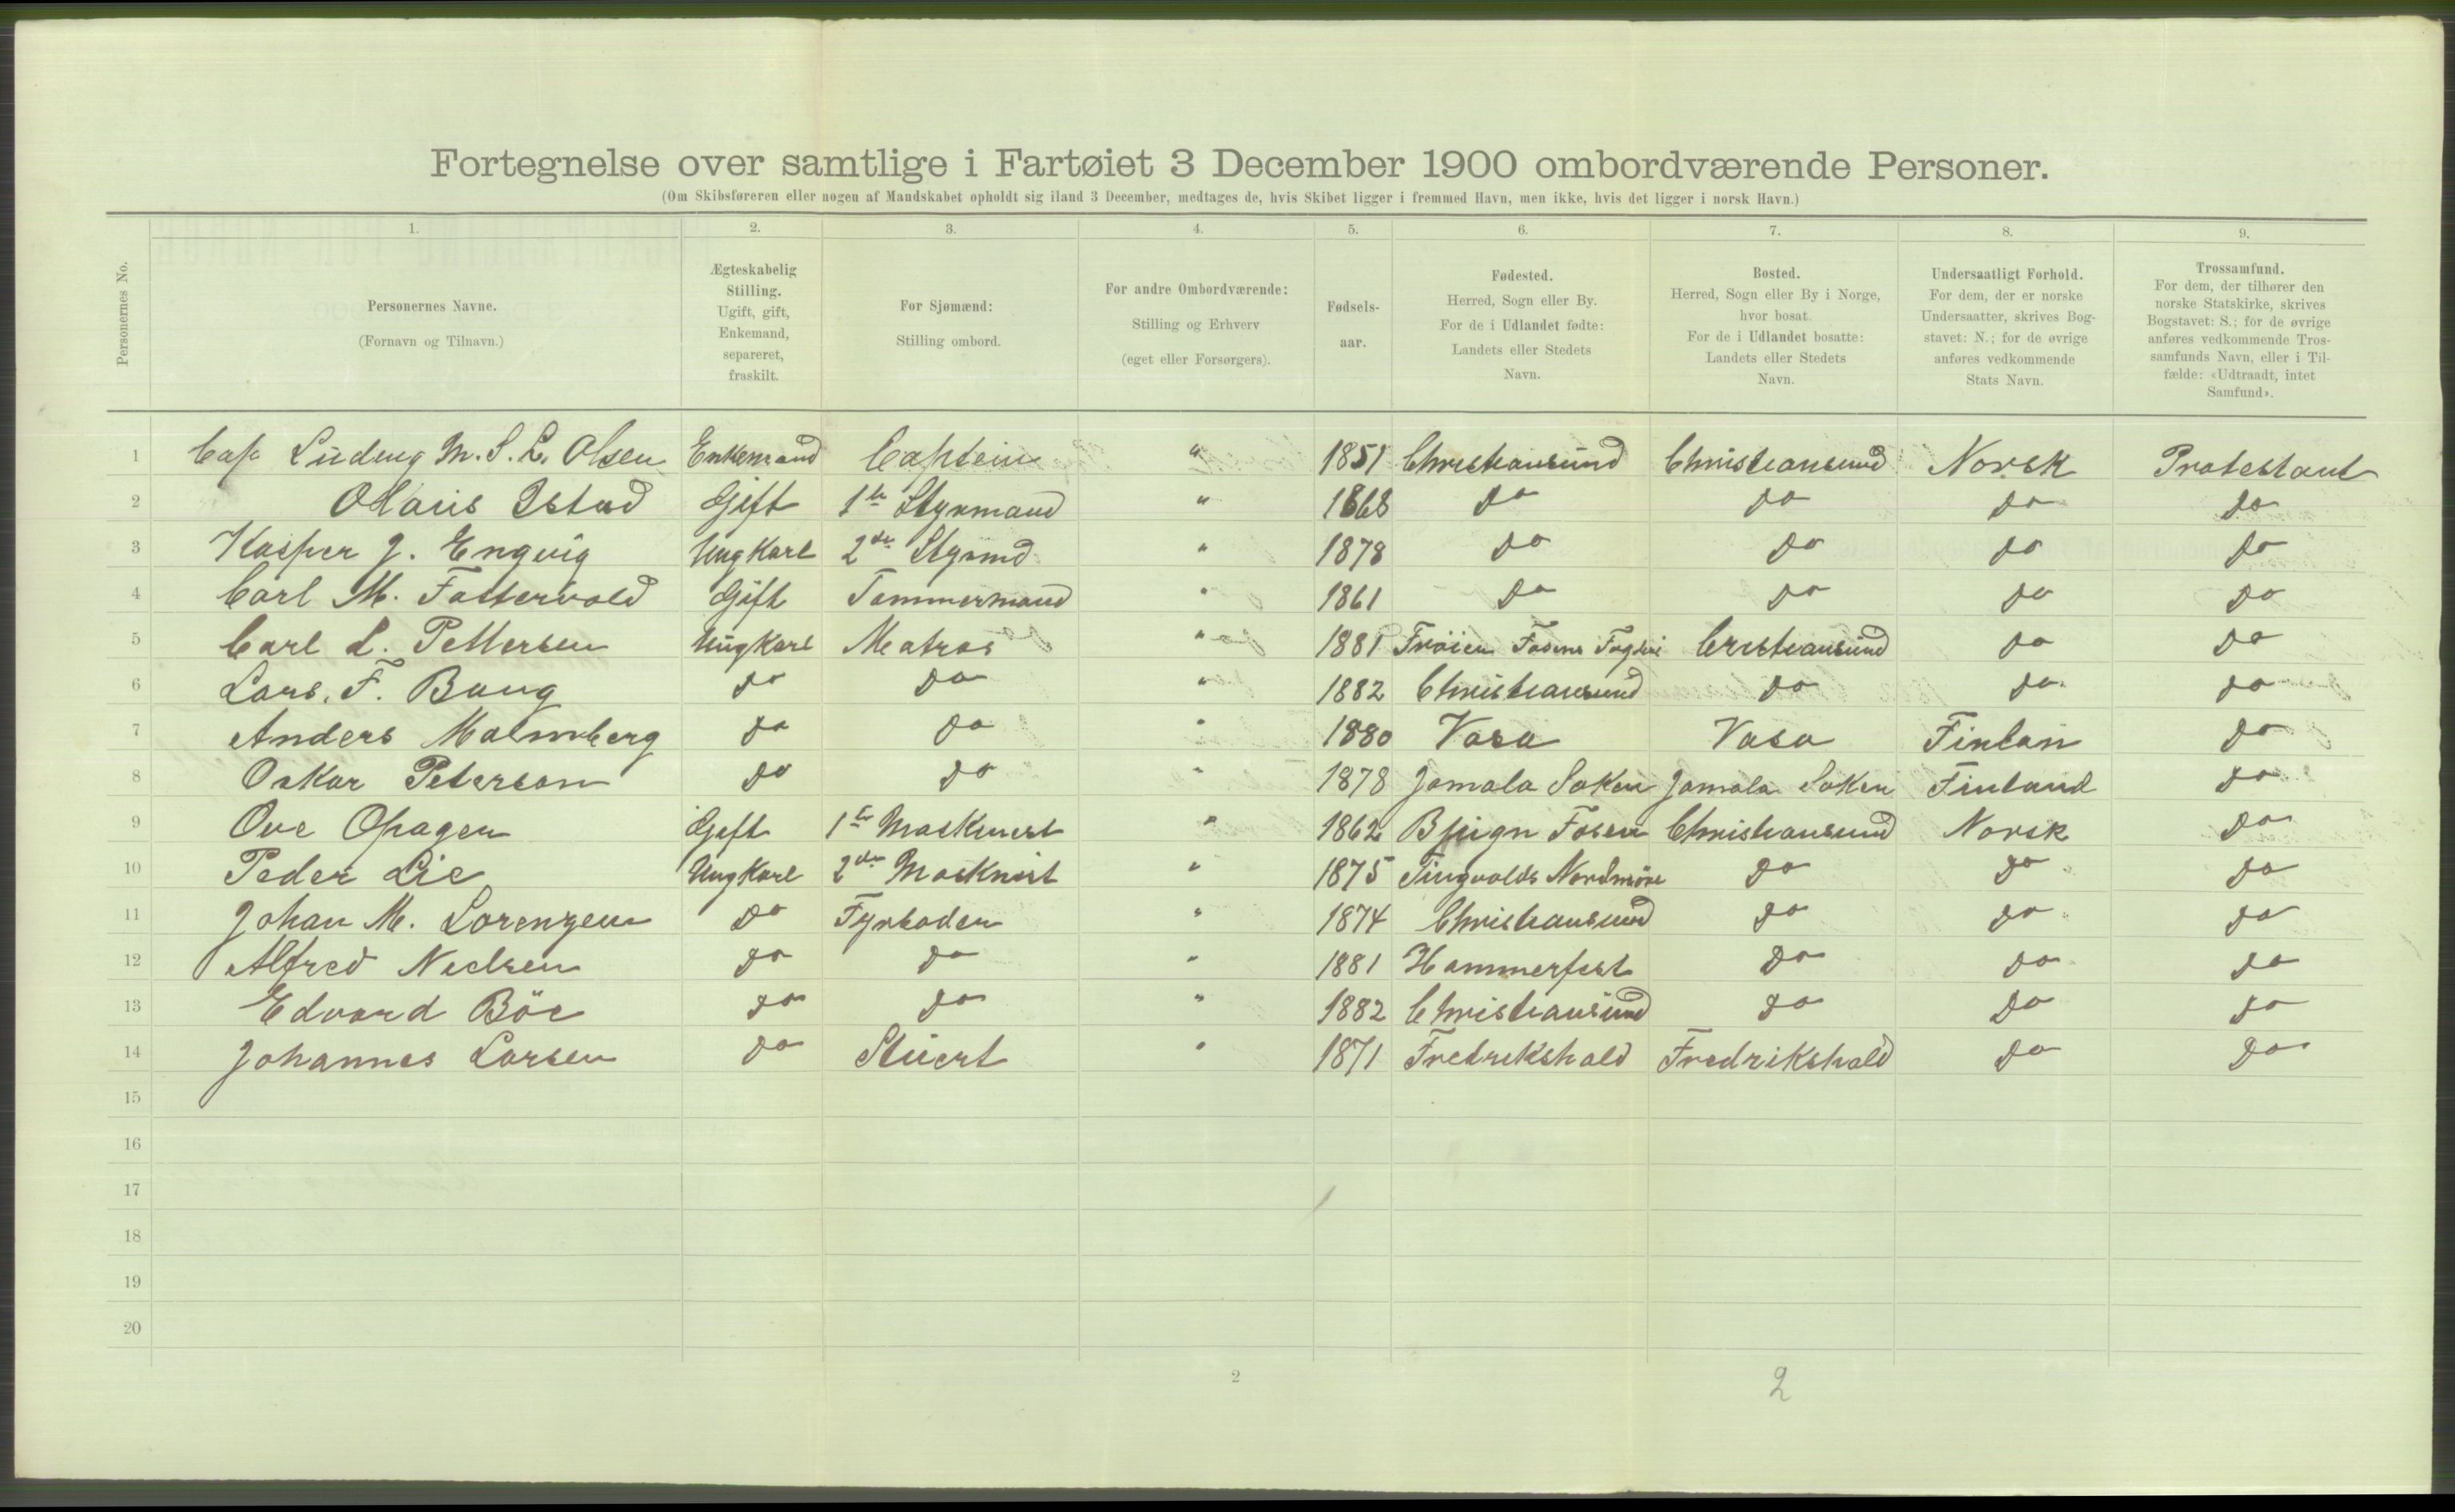 Fortegnelse over samtlige i Fartøiet 3 December 1900 ombordværende Personer.
(Om Skibsføreren eller nogen af Mandskabet opholdt sig iland 3 December, medtages de, hvis Skibet ligger i fremmed Havn, men ikke, hvis det ligger i norsk Havn.)
1. 2. 3. 4. 5. 6. 7. 8. 9.
Personernes No.
Personernes Navne.
(Fornavn og Tilnavn.)
Ægteskabelig
Stilling.
Ugift, gift,
Enkemand,
separeret,
fraskilt.
For Sjømænd:
Stilling ombord.
For andre Ombordværende:
Stilling og Erhverv
(eget eller Forsørgers).
Fødsels-
aar.
Fødested.
Herred, Sogn eller By.
For de i Udlandet fødte:
Landets eller Stedets
Navn.
Bosted.
Herred, Sogn eller By i Norge,
hvor bosat.
For de i Udlandet bosatte:
Landets eller Stedets
Navn.
Undersaatligt Forhold.
For dem, der er norske
Undersaatter, skrives Bog-
stavet: N.; for de øvrige
anføres vedkommende
Stats Navn.
Trossamfund.
For dem, der tilhører den
norske Statskirke, skrives
Bogstavet: S.; for de øvrige
anføres vedkommende Tros-
samfunds Navn, eller i Til-
fælde: «Udtraadt, intet
Samfund».
1 Cap Ludvig M. S. L. Olsen Enkemand Captein " 1851 Christiansund Christiansund Norsk Protestant
2 Olaus Istad Gift 1ste Styrmand " 1868 do do do do
3 Kasper J. Engvig Ung Karl 2den Styrmd " 1878 do do do do
4 Carl M. Fattervold Gift Tømmermand " 1861 do do do do
5 Carl L. Pettersen Ung Karl Matros " 1881 Frøien Fosens Cristiansund do do
6 Lars. F. Bang do do " 1882 Christiansund do do do
7 Anders Malmberg do do " 1880 Vasa Vasa Finlan do
8 Oskar Peterson do do " 1878 Jomala Soken Jomala Soken Finland do
9 Ove Opagen Gift 1ste Maskinist " 1862 Bjugn Fosen Christiansund Norsk do
10 Peder Lie Ung Karl 2den Maskinist " 1875 Tingvolds Nordmöre do do do
11 Johan M. Lorenzen do Fyrbøder " 1874 Christiansund do do do
12 Alfred Nielsen do do " 1881 Hammerfest do do do
13 Edvard Böe do do " 1882 Christiansund do do do
14 Johannes Larsen do Stuert " 1871 Fredrikshald Fredrikshald do do
15
16
17
18
19
20
2 2